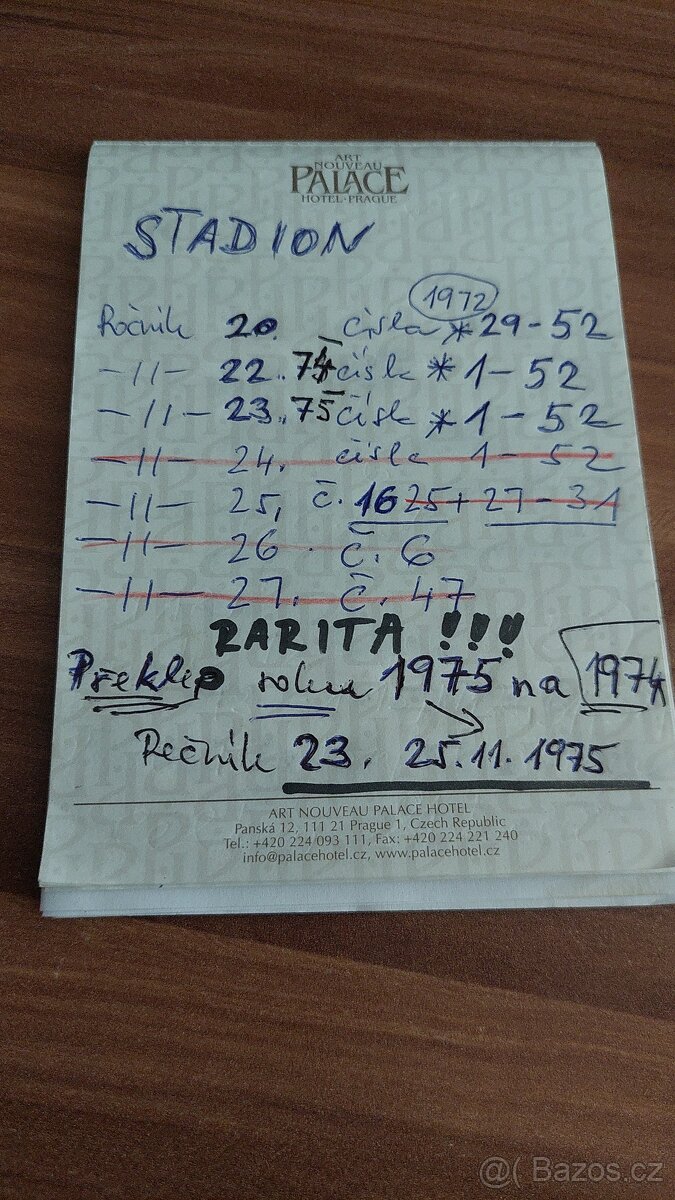 ART
NOUVEAU
PALACE
HOTEL·PRAGUE
STADION
1972
Ročník 20. čísla * 29 - 52
-11- 22. 74 čísla * 1 - 52
-11- 23. 75 čísla * 1 - 52
-11- 24. čísla 1 - 52
-11- 25, č. 16 25 + 27 - 31
-11- 26. č. 6
-11- 27. č. 47
RARITA !!!
Překlep roku 1975 na 1974
Ročník 23. 25.11.1975
ART NOUVEAU PALACE HOTEL
Panská 12, 111 21 Prague 1, Czech Republic
Tel.: +420 224 093 111, Fax: +420 224 221 240
info@palacehotel.cz, www.palacehotel.cz
@( Bazos.cz